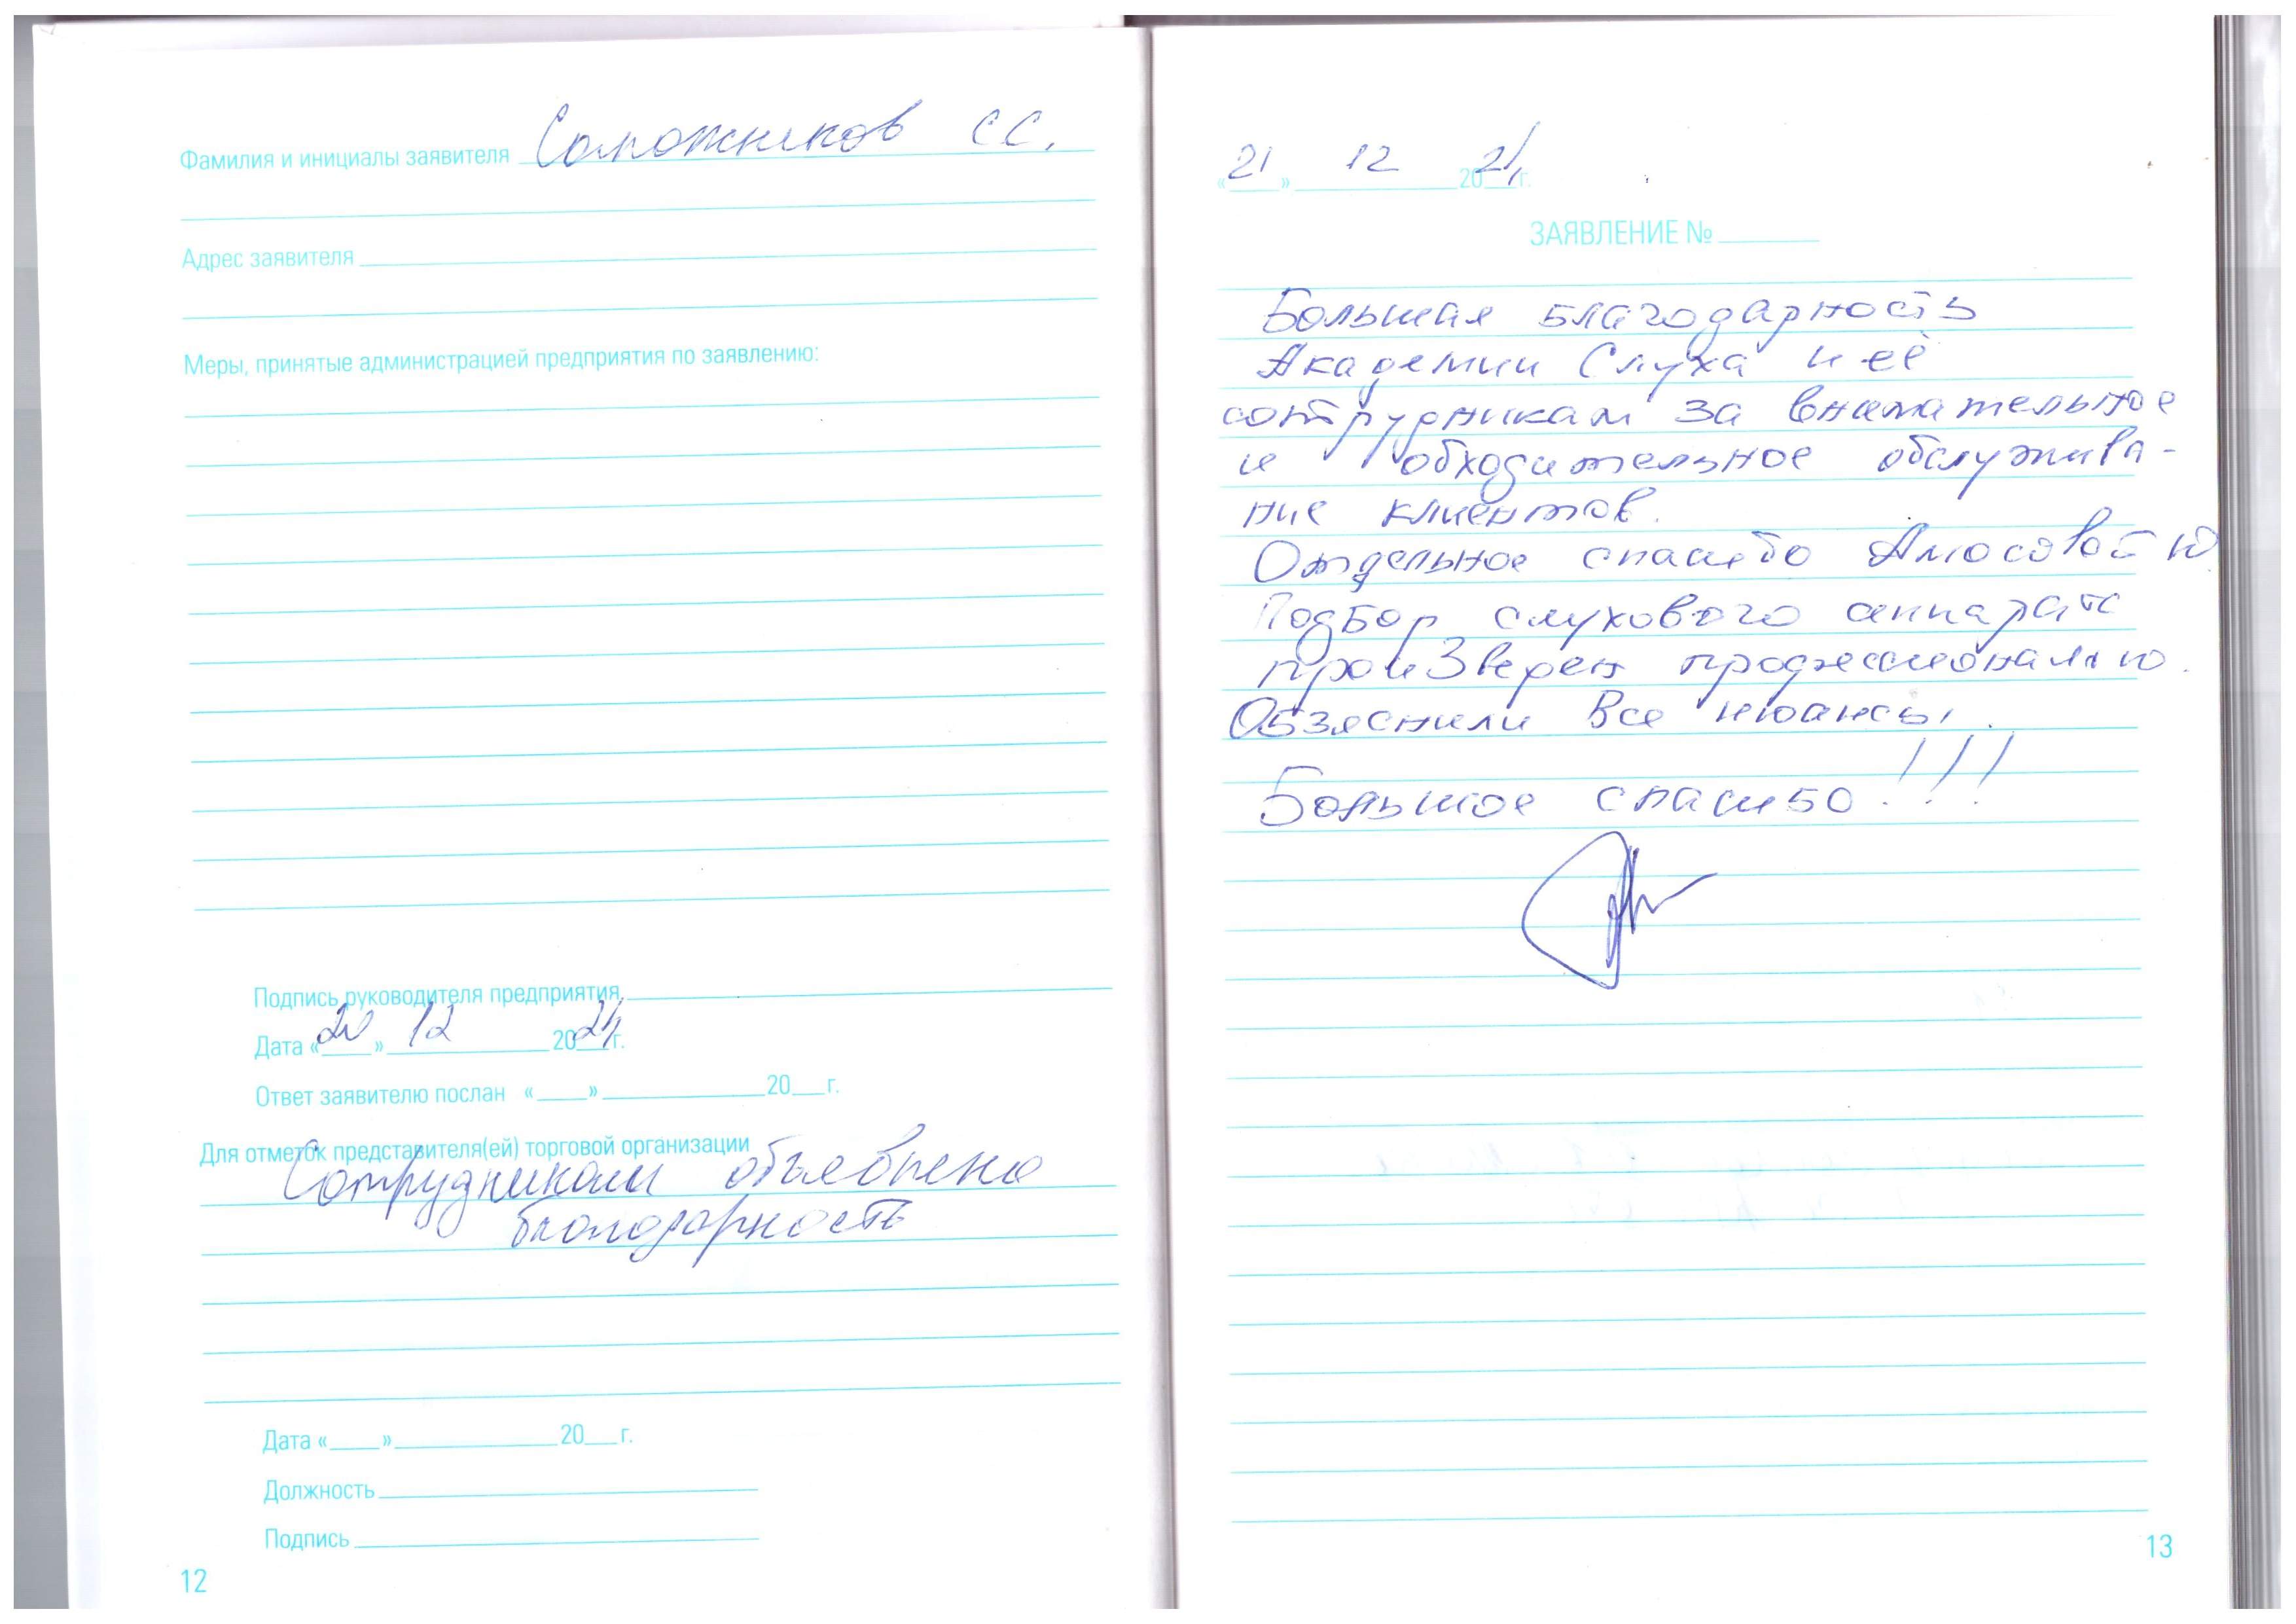 Фамилия и инициалы заявителя Сапожников СС.
Адрес заявителя
Меры, принятые администрацией предприятия по заявлению:
Подпись руководителя предприятия
Дата «20» 12 2021г.
Ответ заявителю послан «____»____________20___г.
Для отметок представителя(ей) торговой организации
Сотрудникам объявлена
благодарность
Дата «____»____________20___г.
Должность
Подпись
12
«21» 12 2021г.
ЗАЯВЛЕНИЕ №
Большая благодарность
Академии Слуха и её
сотрудникам за внимательное
и обходительное обслужива-
ние клиентов.
Отдельное спасибо Амосовой Ю.
Подбор слухового аппарата
произведен профессионально.
Объяснили все нюансы.
Большое спасибо!!!
13